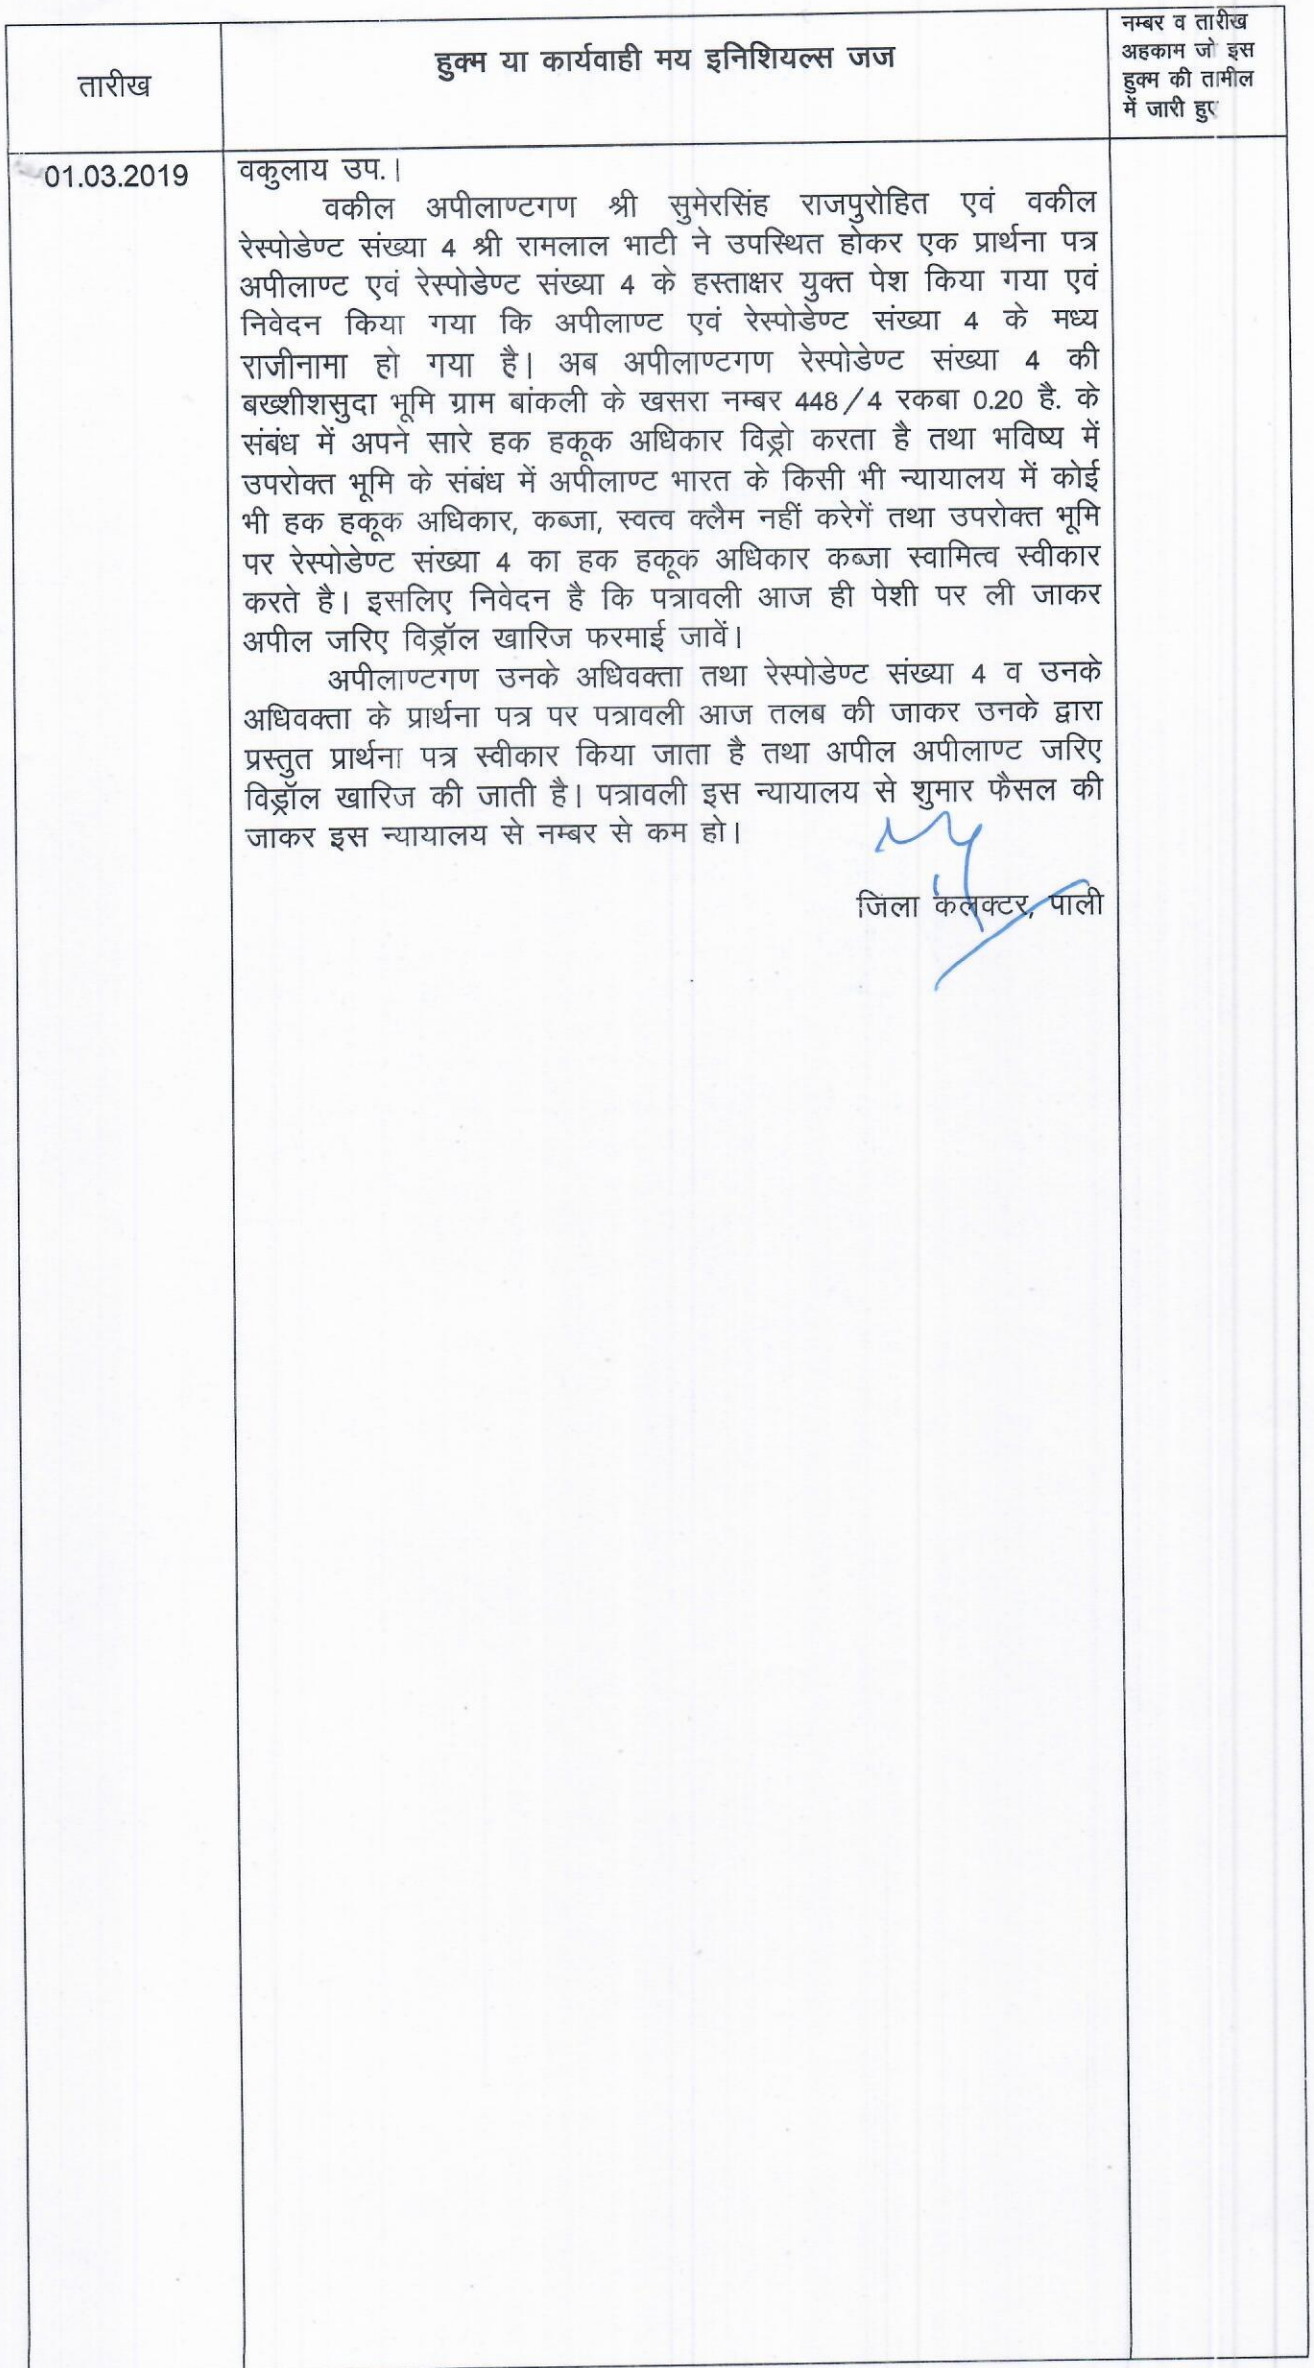 तारीख
हुक्म या कार्यवाही मय इनिशियल्स जज
नम्बर व तारीख
अहकाम जो इस
हुक्म की तामील
में जारी हुए
01.03.2019
वकुलाय उप.।
वकील अपीलाण्टगण श्री सुमेरसिंह राजपुरोहित एवं वकील
रेस्पोडेण्ट संख्या 4 श्री रामलाल भाटी ने उपस्थित होकर एक प्रार्थना पत्र
अपीलाण्ट एवं रेस्पोडेण्ट संख्या 4 के हस्ताक्षर युक्त पेश किया गया एवं
निवेदन किया गया कि अपीलाण्ट एवं रेस्पोडेण्ट संख्या 4 के मध्य
राजीनामा हो गया है। अब अपीलाण्टगण रेस्पोडेण्ट संख्या 4 की
बख्शीशसुदा भूमि ग्राम बांकली के खसरा नम्बर 448/4 रकबा 0.20 है. के
संबंध में अपने सारे हक हकूक अधिकार विड्रो करता है तथा भविष्य में
उपरोक्त भूमि के संबंध में अपीलाण्ट भारत के किसी भी न्यायालय में कोई
भी हक हकूक अधिकार, कब्जा, स्वत्व क्लैम नहीं करेगें तथा उपरोक्त भूमि
पर रेस्पोडेण्ट संख्या 4 का हक हकूक अधिकार कब्जा स्वामित्व स्वीकार
करते है। इसलिए निवेदन है कि पत्रावली आज ही पेशी पर ली जाकर
अपील जरिए विड्रॉल खारिज फरमाई जावें।
अपीलाण्टगण उनके अधिवक्ता तथा रेस्पोडेण्ट संख्या 4 व उनके
अधिवक्ता के प्रार्थना पत्र पर पत्रावली आज तलब की जाकर उनके द्वारा
प्रस्तुत प्रार्थना पत्र स्वीकार किया जाता है तथा अपील अपीलाण्ट जरिए
विड्रॉल खारिज की जाती है। पत्रावली इस न्यायालय से शुमार फैसल की
जाकर इस न्यायालय से नम्बर से कम हो।
जिला कलक्टर, पाली